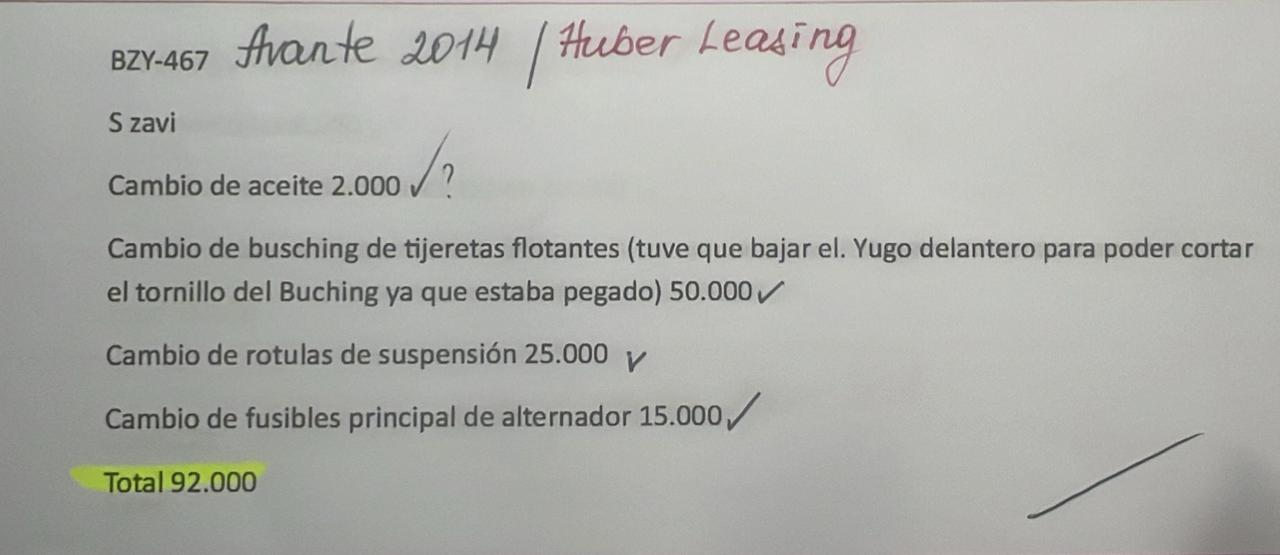 BZY-467 Avante 2014 / Huber Leasing
S zavi
Cambio de aceite 2.000 ✓?
Cambio de busching de tijeretas flotantes (tuve que bajar el. Yugo delantero para poder cortar
el tornillo del Buching ya que estaba pegado) 50.000 ✓
Cambio de rotulas de suspensión 25.000 ✓
Cambio de fusibles principal de alternador 15.000 ✓
Total 92.000